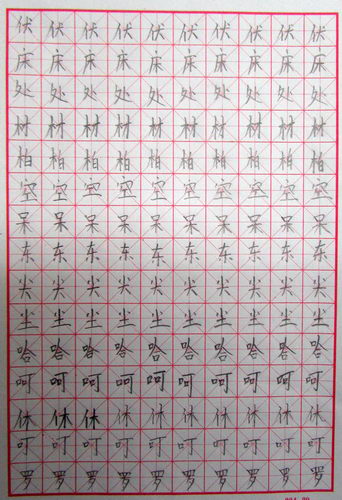 伏伏伏伏伏伏伏伏伏伏
床床床床床床床床床床
处处处处处处处处处处
材材材材材材材材材材
柏柏柏柏柏柏柏柏柏柏
空空空空空空空空空空
呆呆呆呆呆呆呆呆呆呆
东东东东东东东东东东
尖尖尖尖尖尖尖尖尖尖
尘尘尘尘尘尘尘尘尘尘
哈哈哈哈哈哈哈哈哈哈
呵呵呵呵呵呵呵呵呵呵
休休休休休休休休休休
叮叮叮叮叮叮叮叮叮叮
罗罗罗罗罗罗罗罗罗罗